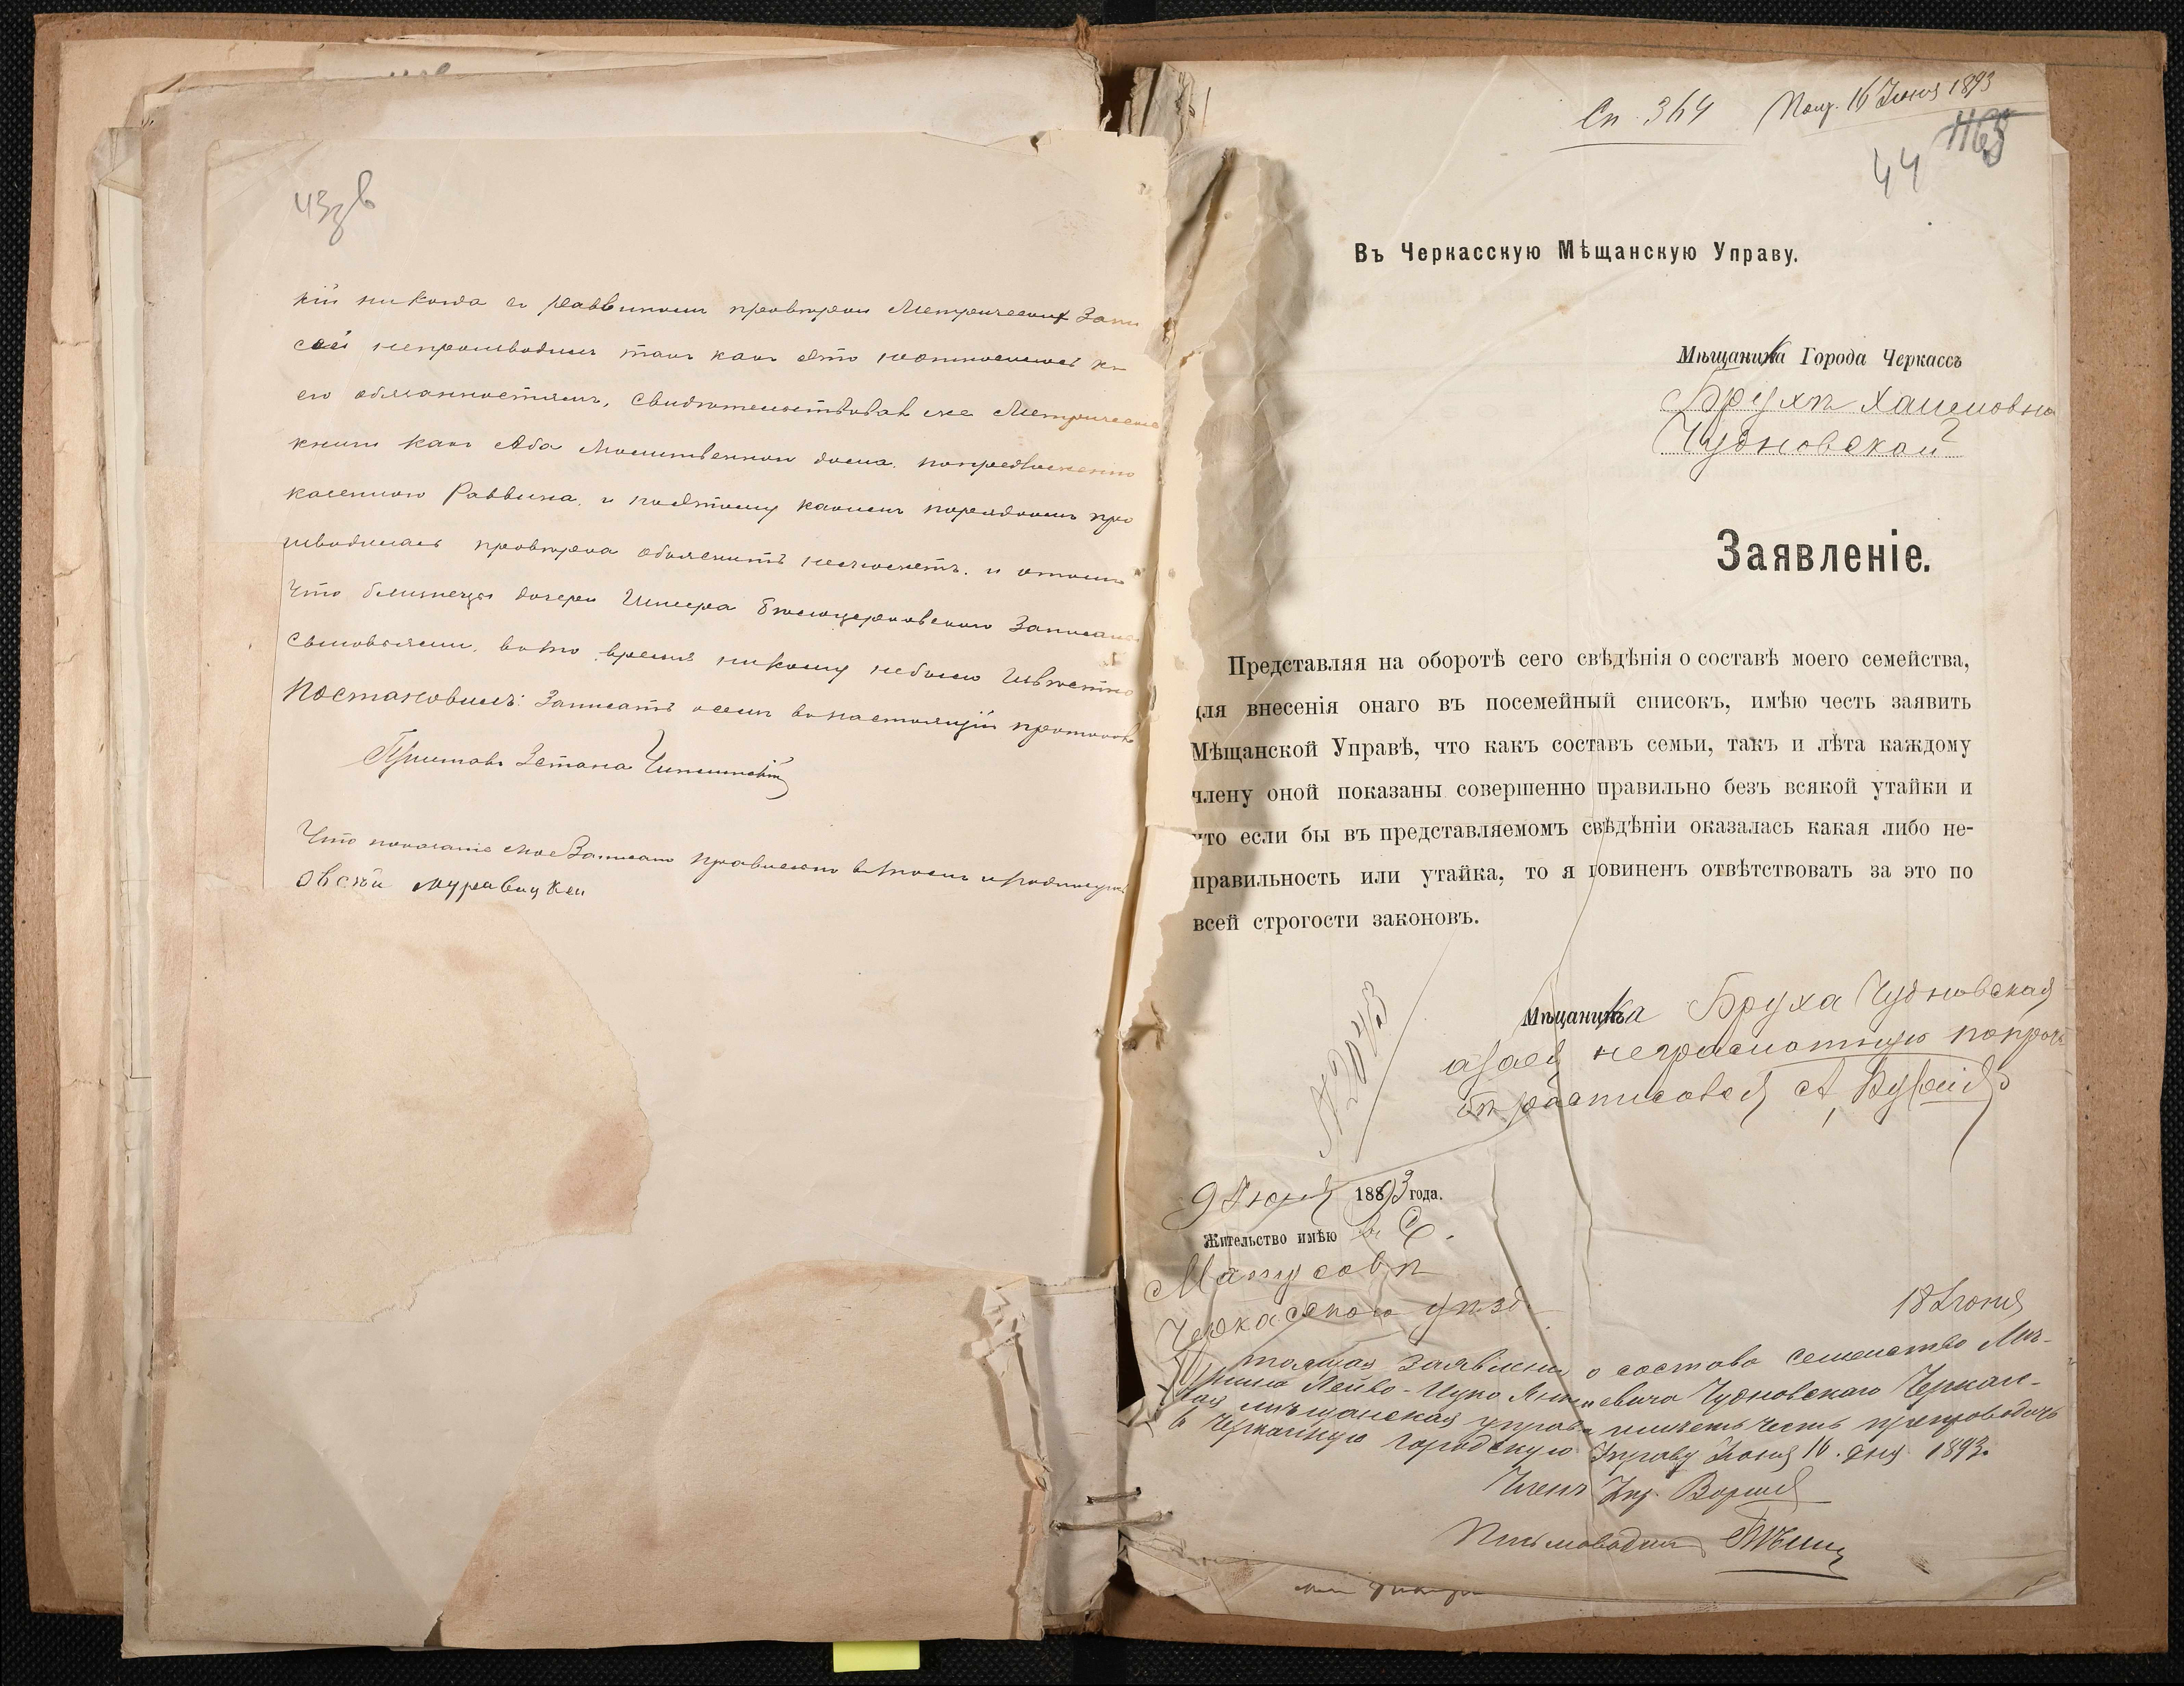 43 зв
кій никогда съ раввиномъ провѣрки Метрическихъ Запи
сей непроизводилъ такъ какъ это неотносилось къ
его обязанностямъ, свидѣтельствовалъ же Метрическіе
книги какъ Аба Молитвенного дома. попредложенію
казенного Раввина. и поэтому какимъ порядкомъ про
изводилась провѣрка объяснить неможетъ. и отомъ
что близнецы дочери Шмера Бѣлоцерковского Записаны
сыновьями. вото время никому небыло извѣстно
Постановилъ: Записать осемъ внастоящій протоколъ
Приставъ 2 стана
Что показаніе мое Записано правильно втомъ иподписуюсь
овсѣй муравицкей
Сп. 364 Пол. 16 Іюня 1893
44 1163
Въ Черкасскую Мѣщанскую Управу.
Мѣщанинка Города Черкассъ
Брухи Хаимовны
Чудновской
Заявленіе.
Представляя на оборотѣ сего свѣдѣнія о составѣ моего семейства,
для внесенія онаго въ посемейный списокъ, имѣю честь заявить
Мѣщанской Управѣ, что какъ составъ семьи, такъ и лѣта каждому
члену оной показаны совершенно правильно безъ всякой утайки и
что если бы въ представляемомъ свѣдѣніи оказалась какая либо не-
правильность или утайка, то я повиненъ отвѣтствовать за это по
всей строгости законовъ.
Мѣщанинка Бруха Чудновская
а за ея неграмотную попрось
бѣ расписовался А,
№ 2043
9 Іюня 1893 года.
Жительство имѣю въ С.
Матусовѣ
Черкасского уѣзд.
18 Іюня
заявленіе о составѣ семейства Мѣ-
Лейво-Ицко Чудновскаго Черкас-
мѣщанская управа имѣетъ честь препроводить
в Черкасскую городскую Управу Іюня 16. дня 1893.
Членъ Упр.
Письмоводит